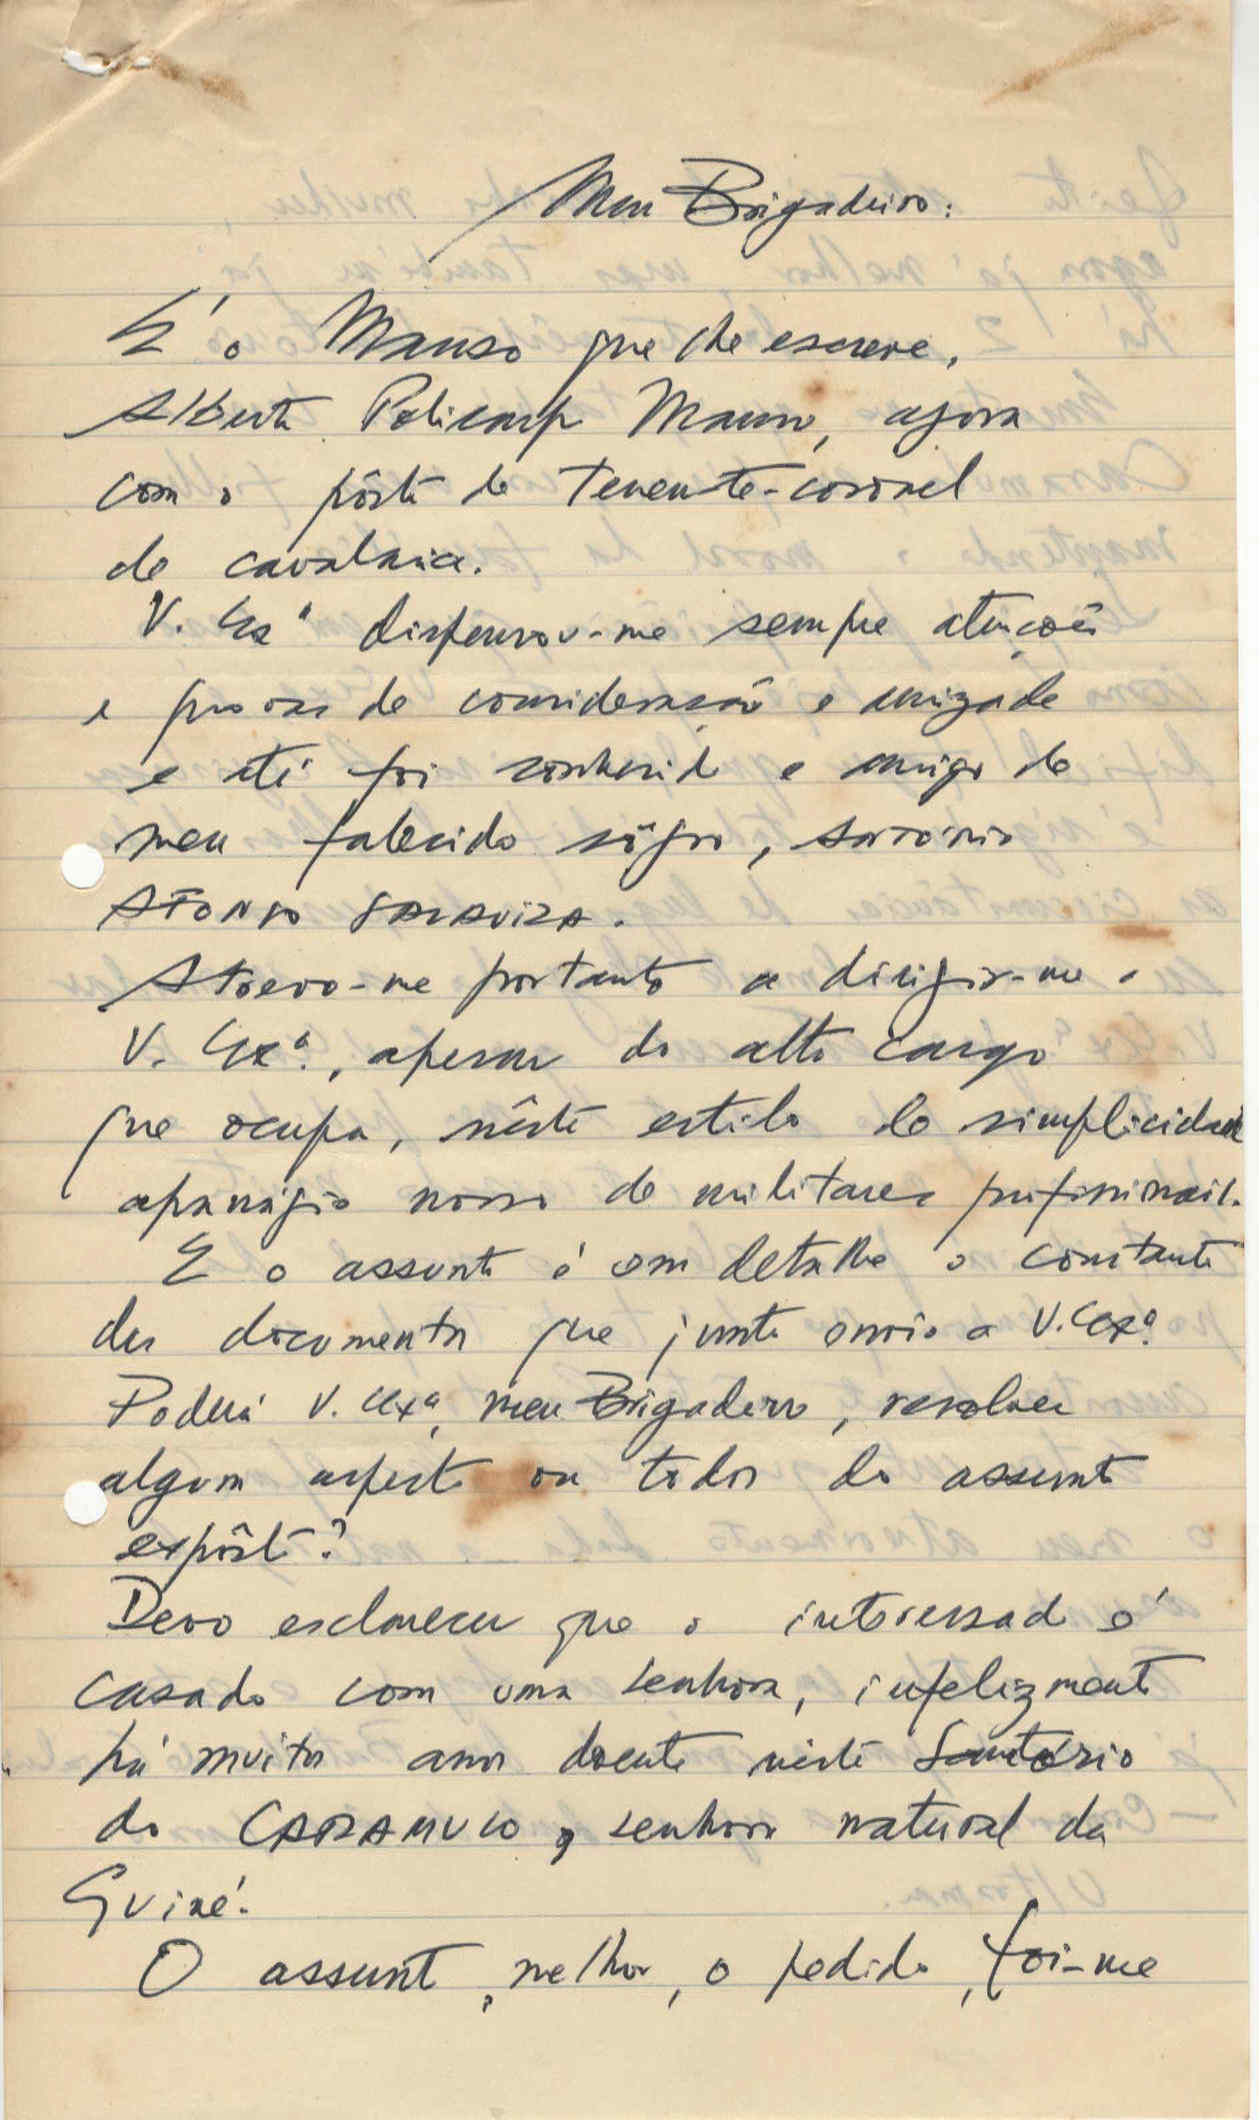 Meu Brigadeiro:
É o Manso que lhe escreve,
Alberto Policarpo Manso, agora
com o pôsto de Tenente-coronel
de cavalaria.
V. Exª dispensou-me sempre atenções
e provas de consideração e amizade
e até foi conhecido e amigo do
meu falecido sôgro,
AFONSO SARAVIRA.
Atrevo-me portanto a dirigir-me a
V. Exª., apesar do alto cargo
que ocupa, nêste estilo de simplicidade
apanágio nosso de militares profissionais.
E o assunto é em detalhe o constante
dos documentos que junto envio a V. Exª.
Poderá V. Exª, meu Brigadeiro, resolver
algum aspecto ou todos do assunto
expôsto?
Devo esclarecer que o interessado é
casado com uma senhora, infelizmente
há muitos anos doente nêste Sanatório
do CARAMULO, senhora natural da
Guiné.
O assunto, melhor, o pedido, foi-me